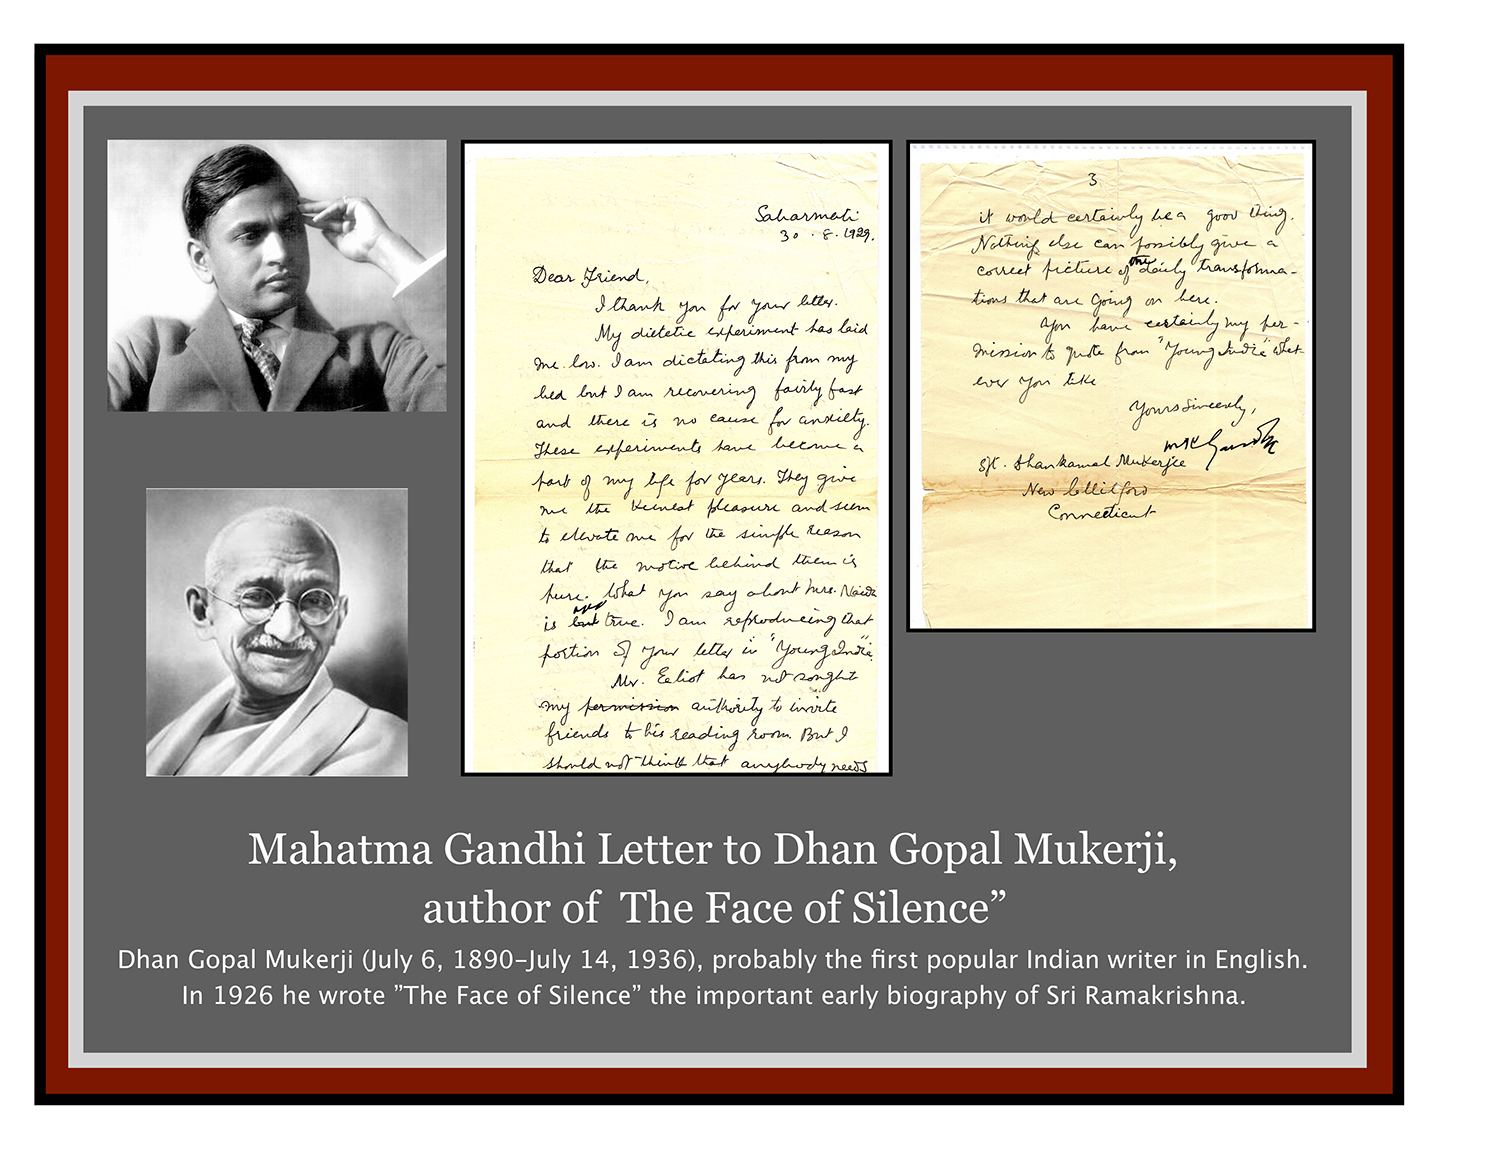 Sabarmati
30.8.1929.
Dear Friend,
I thank you for your letter.
My dietetic experiment has laid
me low. I am dictating this from my
bed but I am recovering fairly fast
and there is no cause for anxiety.
These experiments have become a
part of my life for years. They give
me the keenest pleasure and seem
to elevate me for the simple reason
that the motive behind them is
pure. What you say about Mrs. Naidu
is but true. I am reproducing that
portion of your letter in "Young India".
Mr. has not sought
my permission authority to invite
friends to his reading room. But I
should not think that anybody needs
3
it would certainly be a good thing.
Nothing else can possibly give a
correct picture of the daily transforma-
tions that are going on here.
You have certainly my per-
mission to quote from "Young India" what-
ever you like
Yours sincerely,
MKGandhi
Sjt. Dhankamal Mukerjee
New Milford
Connecticut
Mahatma Gandhi Letter to Dhan Gopal Mukerji,
author of The Face of Silence”
Dhan Gopal Mukerji (July 6, 1890–July 14, 1936), probably the first popular Indian writer in English.
In 1926 he wrote ”The Face of Silence” the important early biography of Sri Ramakrishna.